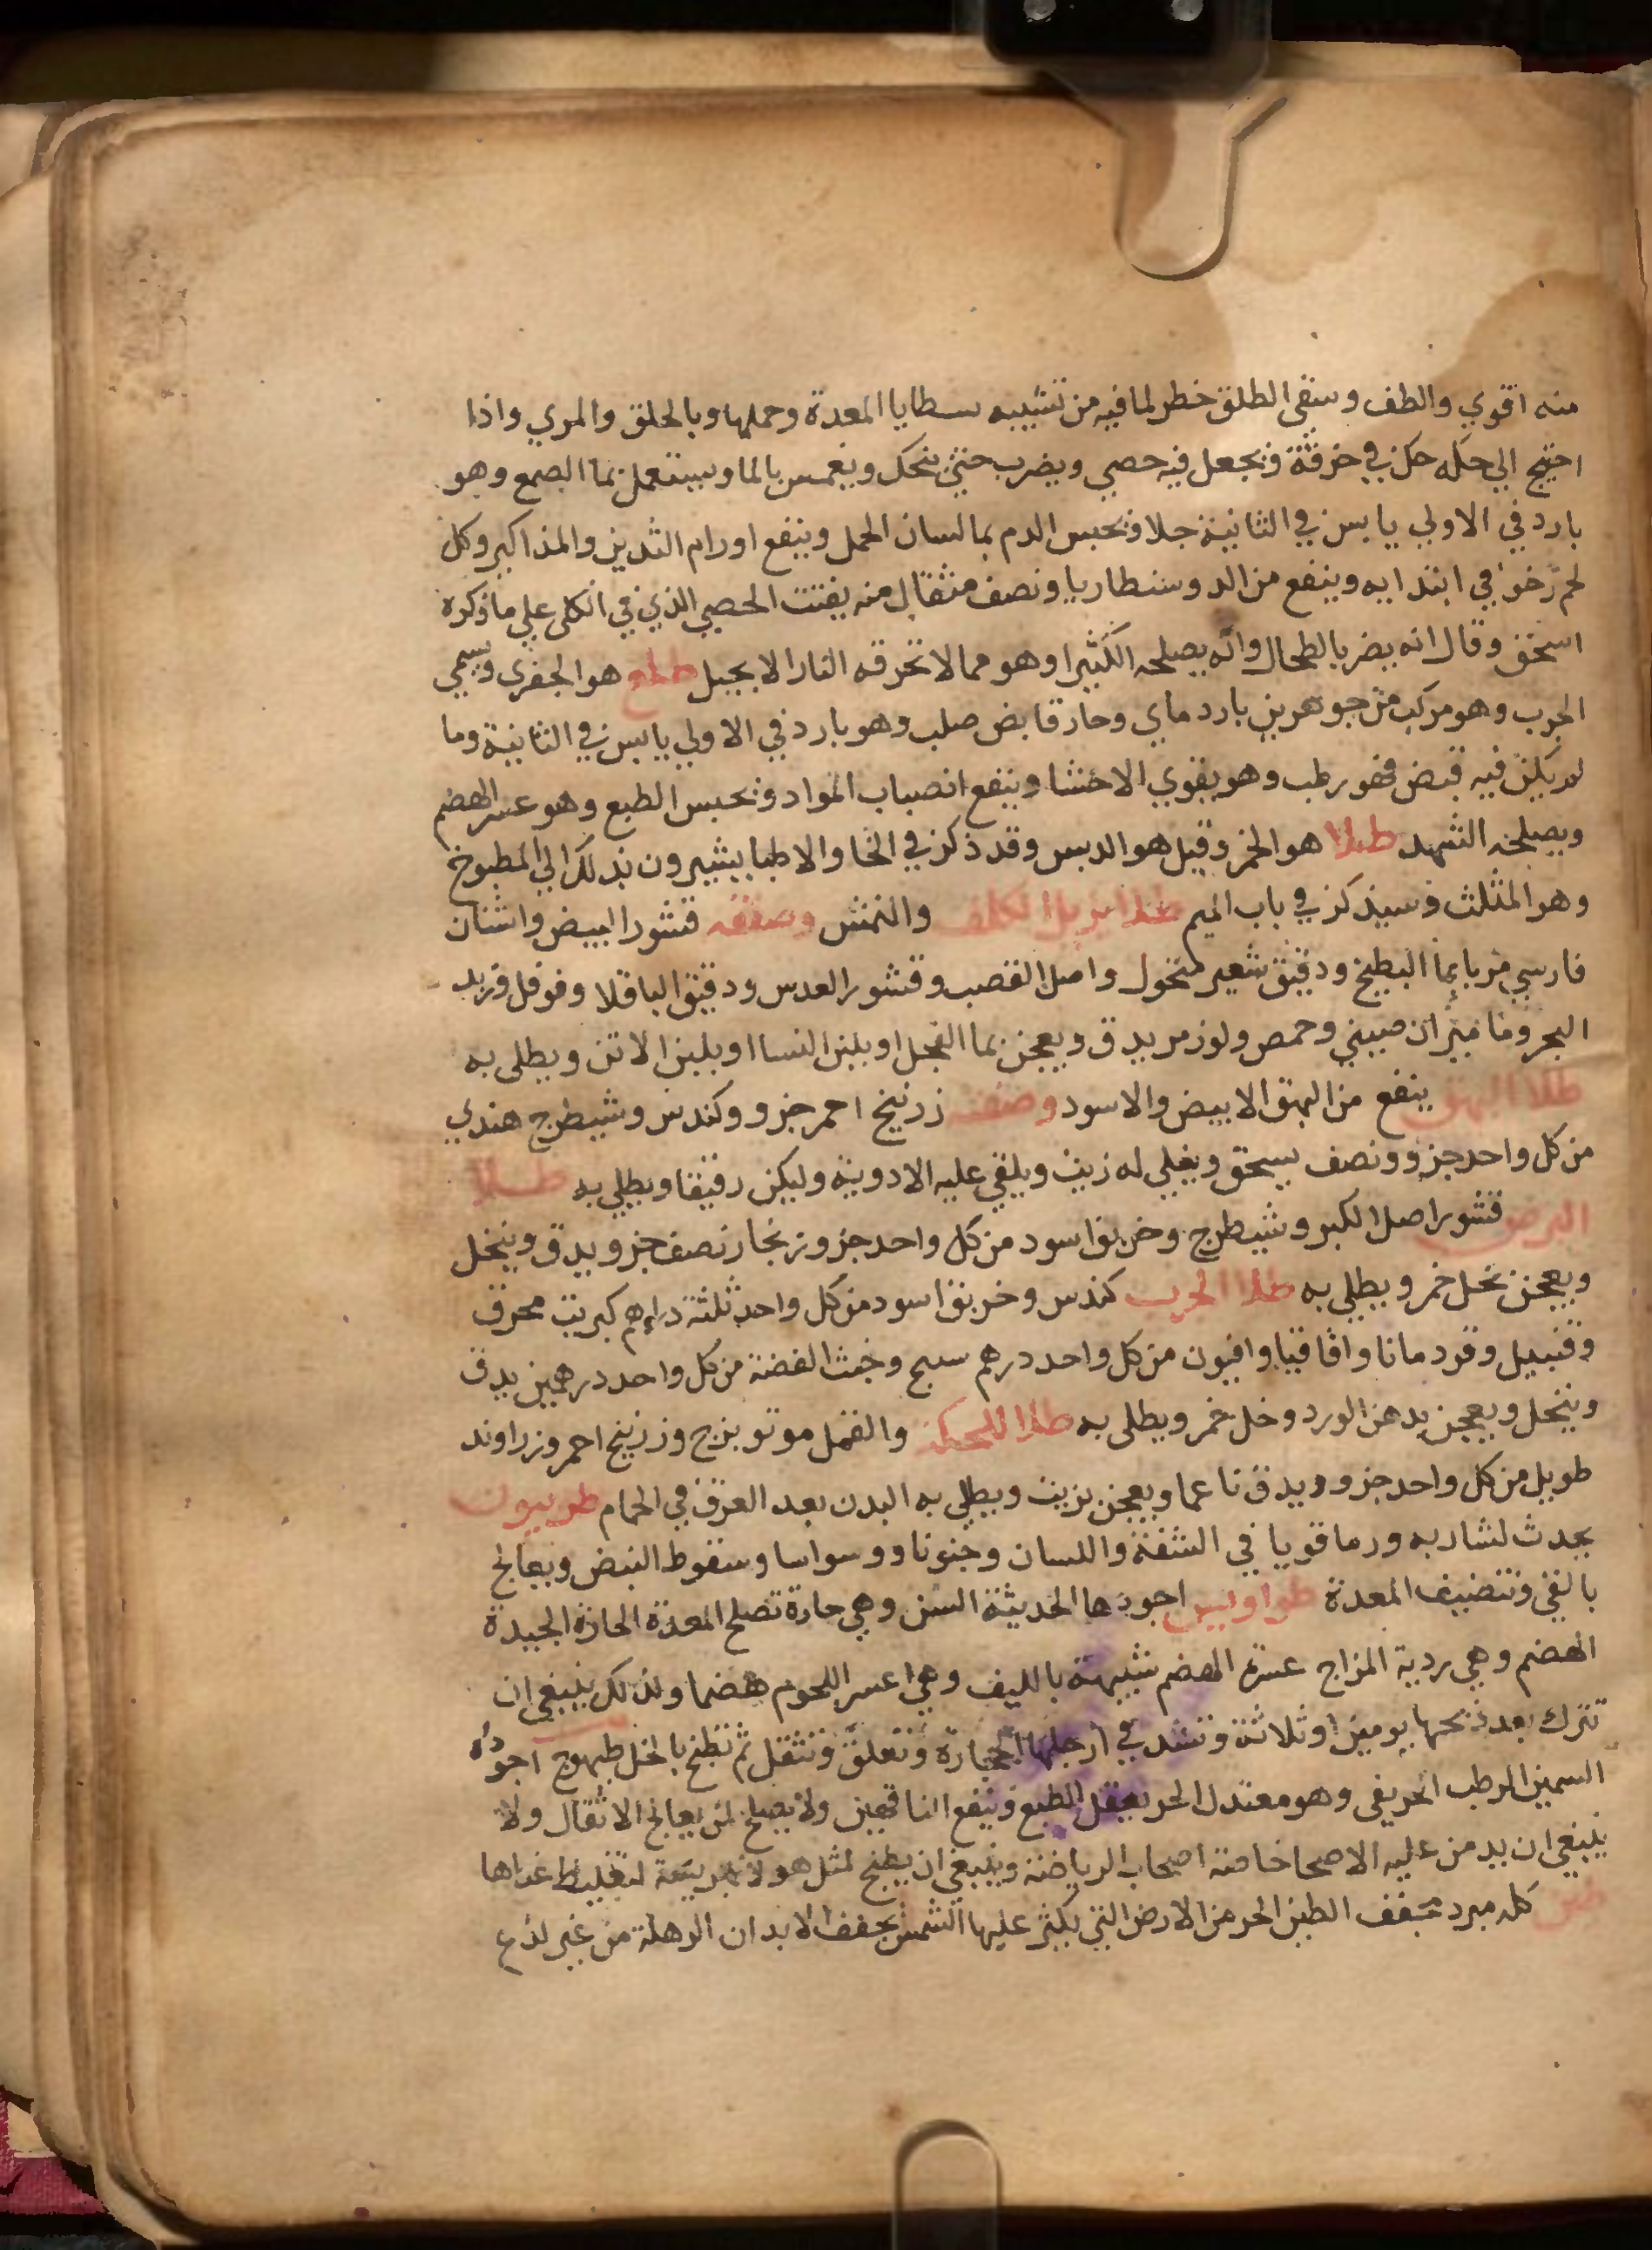 منه اقوي والطف وسقي الطلق خطر لما فيه من تشبيه بسطايا المعدة وحملها وبالحلق والمري واذا
احتيج الي حله حك في خرقة ويجعل فيه حصي ويضرب حتي ينحك ويغمس بالما ويستعمل بما الصمغ وهو
بارد في الاولي يابس في الثانية جلا ويحبس الدم بما لسان الحمل وينفع اورام الثديين والمذاكير وكل
لحم رخو في ابتدايه وينفع من الدوسنطاريا ونصف مثقال منه يفتت الحصي الذي في الكلي علي ما ذكره
اسحق وقال انه يضر بالطحال وانه يصلحه الكثيرا وهو مما لا تحرقه النار الا بحيل طلع هو الجفري ويسمي
الجرب وهو مركب من جوهرين بارد ماي وحار قابض صلب وهو بارد في الاولي يابس في الثانية وما
لم يكن فيه قبض فهو رطب وهو يقوي الاحشا وينفع انصباب المواد ويحبس الطبع وهو عسر الهضم
ويصلحه الشهد طلا هو الخمر وقيل هو الدبس وقد ذكر في الخا والاطبا يشيرون بذلك الي المطبوخ
وهو المثلث وسيذكر في باب الميم طلا يزيل الكلف والنمش وصفته قشور البيض واشنان
فارسي مربا بما البطيخ ودقيق شعير منخول واصل القصب وقشور العدس ودقيق الباقلا وفوفل وزبد
البحر وماميران صيني وحمص ولوز مر يدق ويعجن بما الفجل او بلبن النسا او بلبن الاتن ويطلي به
طلا البهق ينفع من البهق الابيض والاسود وصفته زرنيخ احمر جزو وكندس وشيطرج هندي
من كل واحد جزو ونصف يسحق ويغلي له زيت ويلقي عليه الادوية وليكن رقيقا ويطلي به طلا
البرص قشور اصل الكبر وشيطرج وخربق اسود من كل واحد جزو زنجار نصف جزو يدق وينخل
ويعجن بخل خمر ويطلي به طلا الجرب كندس وخربق اسود من كل واحد ثلثة دراهم كبريت محرق
وقنبيل وقردمانا واقاقيا وافيون من كل واحد درهم سبج وخبث الفضة من كل واحد درهمين يدق
وينخل ويعجن بدهن الورد وخل خمر ويطلي به طلا للحكة والقمل مويوبزج وزرنيخ احمر وزراوند
طويل من كل واحد جزو ويدق ناعما ويعجن بزيت ويطلي به البدن بعد العرق في الحمام طوبيون
يحدث لشاربه ورما قويا في الشفة واللسان وجنونا ووسواسا وسقوط النبض ويعالج
بالقي وتنضيف المعدة طواويس اجودها الحديثة السن وهي حارة تصلح المعدة الحارة الجيدة
الهضم وهي ردية المزاج عسرة الهضم شبيهة بالليف وهي اعسر اللحوم هضما ولذلك ينبغي ان
تترك بعد ذبحها يومين او ثلاثة وتشد في ارجلها الحجارة وتعلق وتثقل ثم تطبخ بالخل طيهوج اجوده
السمين الرطب الخريفي وهو معتدل الحر يعقل الطبع وينفع الناقهين ولا يصلح لمن يعالج الاثقال ولا
ينبغي ان يدمن عليه الاصحا خاصة اصحاب الرياضة وينبغي ان يطبخ لمثل هولا بهريسة لتغليظ غداها
طين كله مبرد مجفف الطين الحر من الارض التي يكثر عليها الشمس يجفف الابدان الرهلة من غير لذع